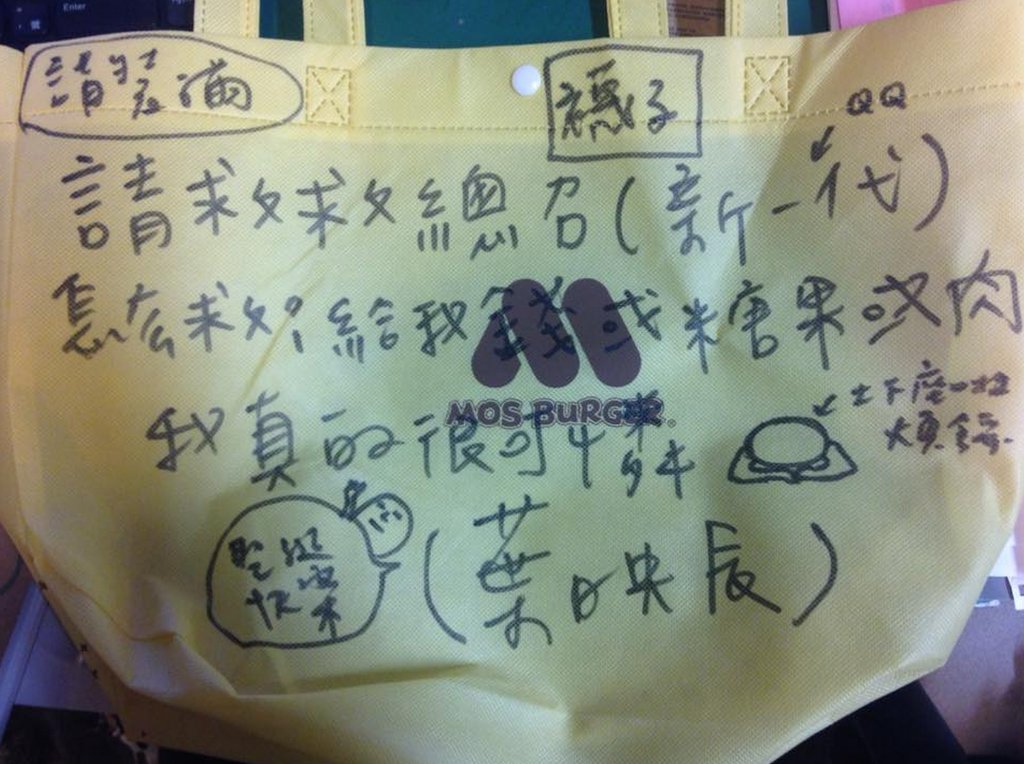 Enter
請裝滿
襪子
QQ
請救救總召(新一代)
怎么救?給我錢或糖果或肉
MOS BURGER
我真的很可憐
土下座
聖誕
快樂
(葉映辰)